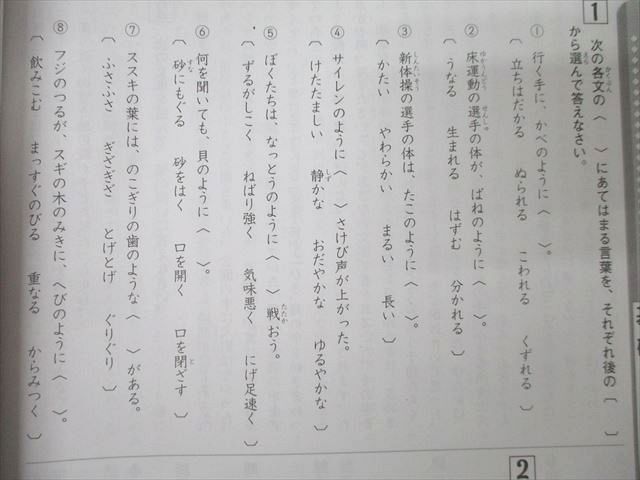 1
次の各文の〈　〉にあてはまる言葉を、それぞれ後の〔　〕
から選んで答えなさい。
① 行く手に、かべのように〈　〉。
〔 立ちはだかる　ぬられる　こわれる　くずれる 〕
② 床運動の選手の体が、ばねのように〈　〉。
〔 うなる　生まれる　はずむ　分かれる 〕
③ 新体操の選手の体は、たこのように〈　〉。
〔 かたい　やわらかい　まるい　長い 〕
④ サイレンのように〈　〉さけび声が上がった。
〔 けたたましい　静かな　おだやかな　ゆるやかな 〕
⑤ ぼくたちは、なっとうのように〈　〉戦おう。
〔 ずるがしこく　ねばり強く　気味悪く　にげ足速く 〕
⑥ 何を聞いても、貝のように〈　〉。
〔 砂にもぐる　砂をはく　口を開く　口を閉ざす 〕
⑦ ススキの葉には、のこぎりの歯のような〈　〉がある。
〔 ふさふさ　ぎざぎざ　とげとげ　ぐりぐり 〕
⑧ フジのつるが、スギの木のみきに、へびのように〈　〉。
〔 飲みこむ　まっすぐのびる　重なる　からみつく 〕
2